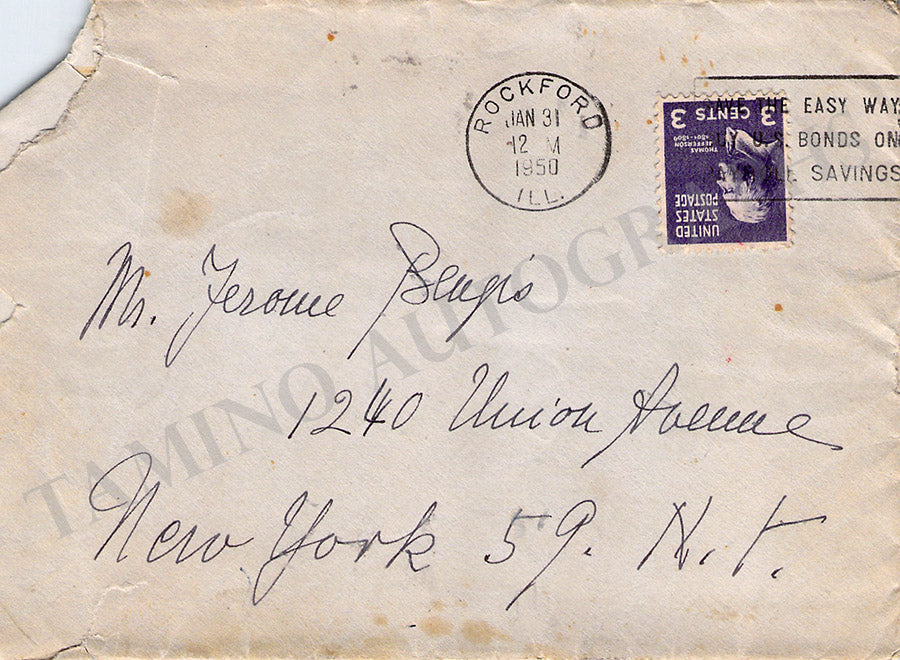 ROCKFORD
JAN 31
12 M
1950
ILL.
THE EASY WAY
U.S. BONDS ON
SAVINGS
3 CENTS 3
THOMAS
JEFFERSON
1801-1809
UNITED
STATES
POSTAGE
Mr. Jerome Bengis
1240 Union Avenue
New York 59. N.Y.
TAMINO AUTOGRAPHS